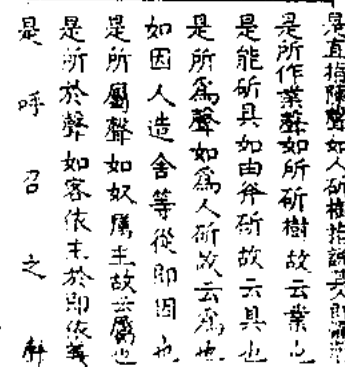 是直指陳聲如人斫樹指說其人即
是所作業聲如所斫樹故云業也
是能斫具如由斧斫故云具也
是所為聲如為人斫故云為也
如因人造舍等從即因也
是所屬聲如奴屬主故云屬也
是所於聲如客依主於即依義
是呼召之辭